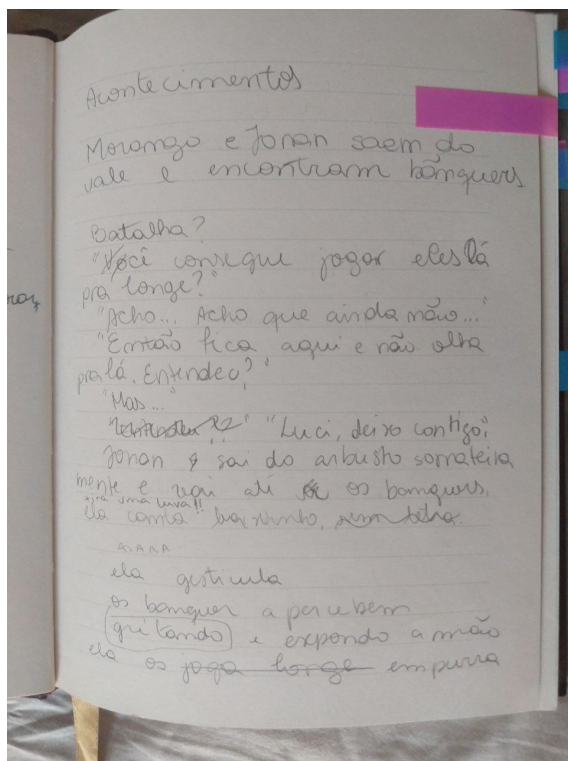 Acontecimentos
Morango e Jonan saem do
vale e encontram bânquers
Batalha?
"Você consegue jogar eles lá
pra longe?"
"Acho... Acho que ainda não..."
"Então fica aqui e não olha
pra lá. Entendeu?"
"Mas..."
"Luci, deixo contigo."
Jonan sai do arbusto sorrateira
mente e vai até os banquers.
uma luva!!
ela canta baixinho,
ela gesticula
os banquer a percebem
gritando e expondo a mão
ela os joga longe empurra